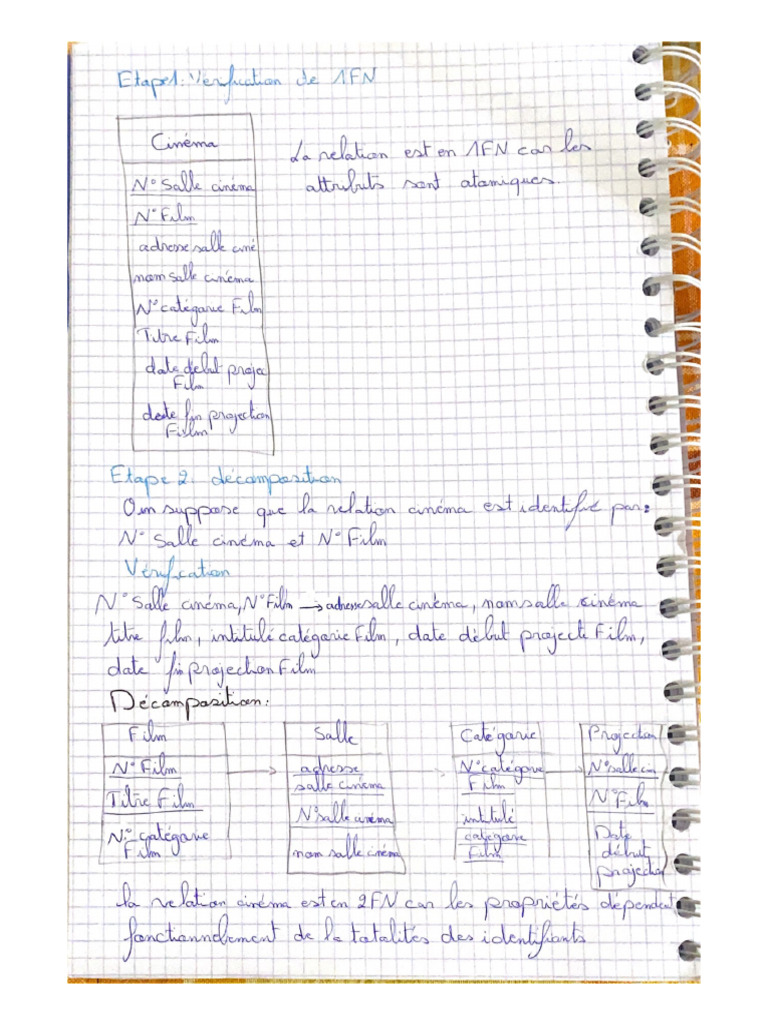 Etape1: Vérification de 1FN
Cinéma
La relation est en 1FN car les
attributs sont atomiques.
N° Salle cinéma
N° Film
adresse salle ciné
nom salle cinéma
N° catégorie Film
Titre Film
date début projec
Film
date fin projection
Film
Etape 2. décomposition
On suppose que la relation cinéma est identifié par:
N° Salle cinéma et N° Film
Vérification
N° Salle cinéma, N° Film → adresse salle cinéma, nom salle cinéma
titre film, intitulé catégorie Film, date début projecti Film,
date fin projection Film
Décomposition:
Film
N° Film
Titre Film
N° catégorie
Film
Salle
adresse
salle cinéma
N° salle cinéma
nom salle cinéma
Catégorie
N° catégorie
Film
intitulé
catégorie
Film
Projection
N° salle cin
N° Film
Date
début
projection
la relation cinéma est en 2FN car les propriétés dépendent
fonctionnelement de la totalités des identifiants